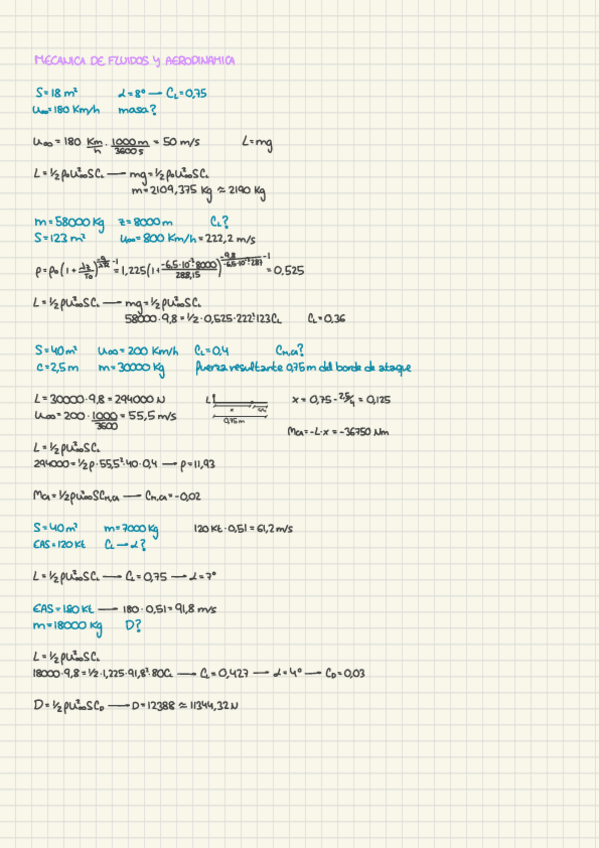 MECANICA DE FLUIDOS Y AERODINAMICA
S=18 m² α=8° — CL=0,75
U∞=180 Km/h masa?
U∞=180 Km/h · 1000m/3600s = 50 m/s L=mg
L=½ρ₀U∞²SCL — mg=½ρ₀U∞²SCL
m=2109,375 Kg ≈ 2190 Kg
m=58000 Kg z=8000m CL?
S=123 m² U∞=800 Km/h=222,2 m/s
L=½ρ₀U∞²SCL — mg=½ρ₀U∞²SCL
58000·9,8=½·0,525·222²·123CL CL=0,36
S=40m² U∞=200 Km/h CL=0,4 Cm,a?
c=2,5m m=30000 Kg fuerza resultante 0,75m del borde de ataque
L=30000·9,8=294000 N L x c/4 x=0,75-2,5/4=0,125
U∞=200·1000/3600=55,5 m/s 0,75m
Mca=-L·x=-36750 Nm
L=½ρU∞²SCL
294000=½ρ·55,5²·40·0,4 — ρ=11,93
Mca=½ρU∞²SCm,a — Cm,a=-0,02
S=40m² m=7000Kg 120 Kt·0,51=61,2m/s
EAS=120Kt CL→α?
L=½ρU∞²SCL — CL=0,75 — α=7°
EAS=180Kt — 180·0,51=91,8 m/s
m=18000 Kg D?
L=½ρU∞²SCL
18000·9,8=½·1,225·91,8²·80CL — CL=0,427 — α=4° — CD=0,03
D=½ρU∞²SCD — D=12388 ≈ 11344,32N